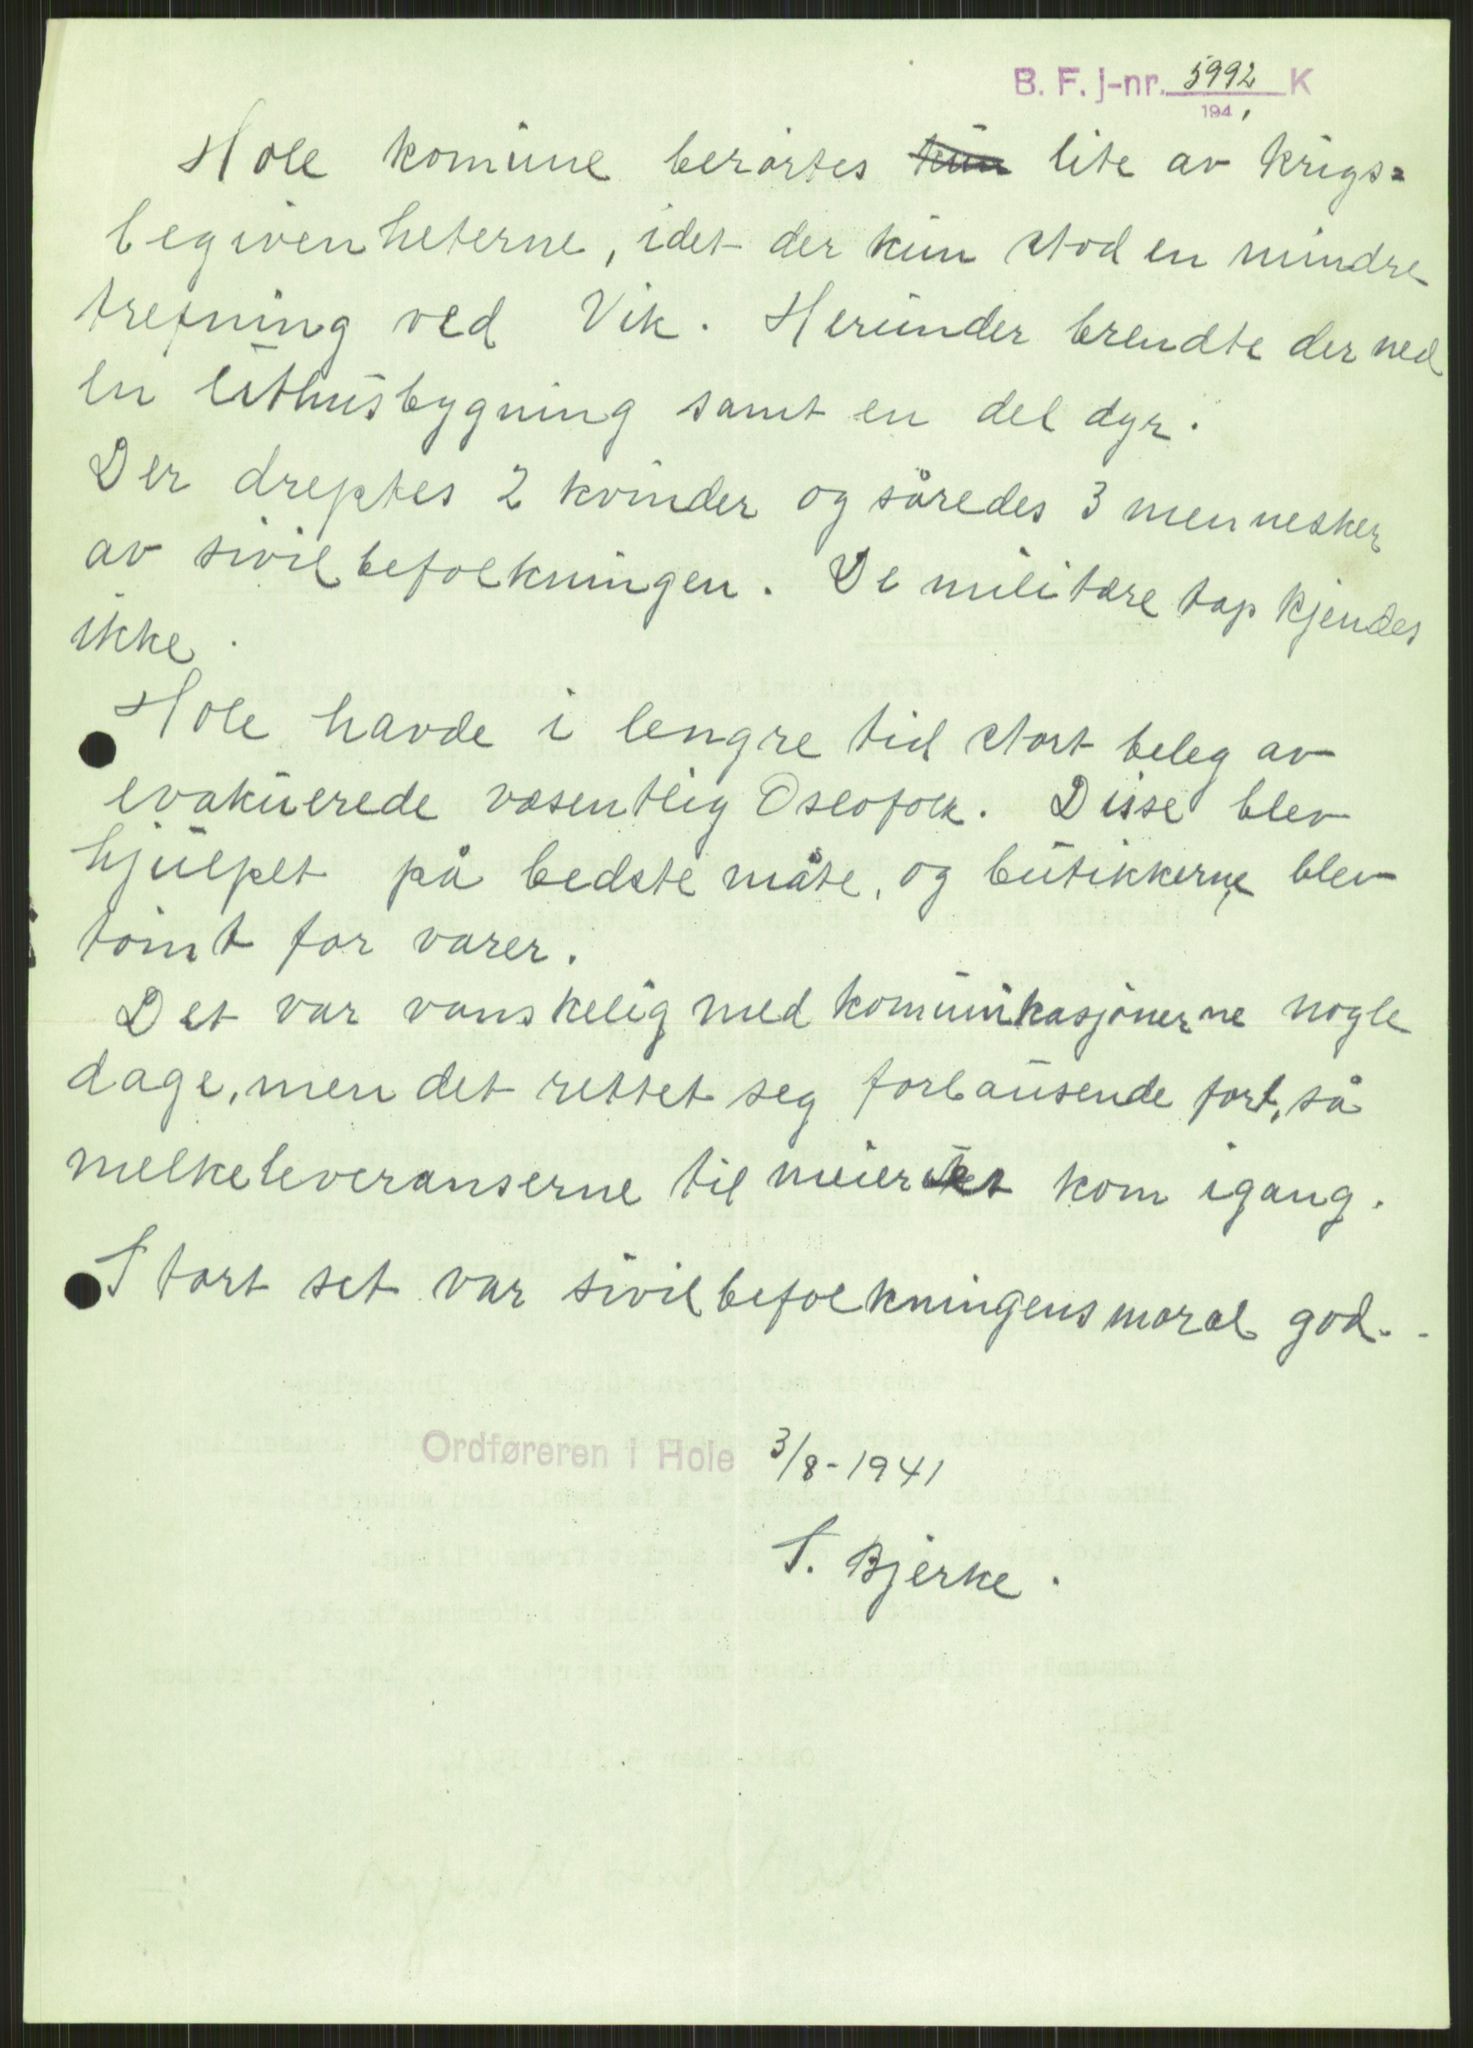 B. F. j-nr. 5992 K
1941
Hole komune berørtes kun lite av krigs=
begivenheterne, idet der kun stod en mindre
trefning ved Vik. Herunder brendte der ned
en uthusbygning samt en del dyr.
Der dreptes 2 kvinder og såredes 3 mennesker
av sivilbefolkningen. De militære tap kjendes
ikke.
Hole havde i lengre tid stort beleg av
evakuerede væsentlig Oslofolk. Disse blev
hjulpet på bedste måte, og butikkerne blev
tømt for varer.
Det var vanskelig med komunikasjonerne nogle
dage, men det rettet seg forbausende fort, så
melkeleveranserne til meieriet kom igang.
Stort set var sivilbefolkningens moral god.
Ordføreren i Hole 3/8-1941
S. Bjerke.